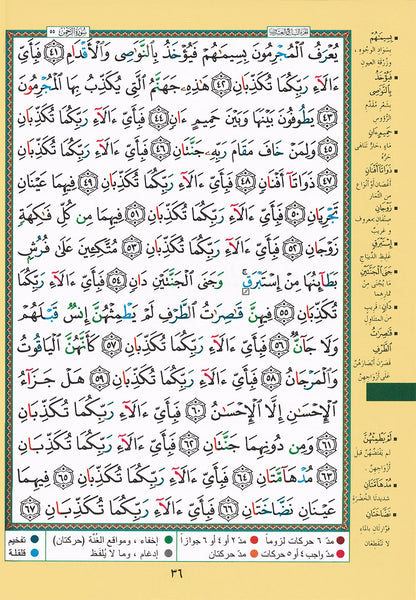 سورة الرحمن ٥٥
يُعْرَفُ ٱلْمُجْرِمُونَ بِسِيمَـٰهُمْ فَيُؤْخَذُ بِٱلنَّوَٰصِى وَٱلْأَقْدَامِ ٤١ فَبِأَىِّ
ءَالَآءِ رَبِّكُمَا تُكَذِّبَانِ ٤٢ هَـٰذِهِۦ جَهَنَّمُ ٱلَّتِى يُكَذِّبُ بِهَا ٱلْمُجْرِمُونَ
٤٣ يَطُوفُونَ بَيْنَهَا وَبَيْنَ حَمِيمٍ ءَانٍ ٤٤ فَبِأَىِّ ءَالَآءِ رَبِّكُمَا تُكَذِّبَانِ
٤٥ وَلِمَنْ خَافَ مَقَامَ رَبِّهِۦ جَنَّتَانِ ٤٦ فَبِأَىِّ ءَالَآءِ رَبِّكُمَا تُكَذِّبَانِ
٤٧ ذَوَاتَآ أَفْنَانٍ ٤٨ فَبِأَىِّ ءَالَآءِ رَبِّكُمَا تُكَذِّبَانِ ٤٩ فِيهِمَا عَيْنَانِ
تَجْرِيَانِ ٥٠ فَبِأَىِّ ءَالَآءِ رَبِّكُمَا تُكَذِّبَانِ ٥١ فِيهِمَا مِن كُلِّ فَـٰكِهَةٍ
زَوْجَانِ ٥٢ فَبِأَىِّ ءَالَآءِ رَبِّكُمَا تُكَذِّبَانِ ٥٣ مُتَّكِـِٔينَ عَلَىٰ فُرُشٍۭ
بَطَآئِنُهَا مِنْ إِسْتَبْرَقٍ ۚ وَجَنَى ٱلْجَنَّتَيْنِ دَانٍ ٥٤ فَبِأَىِّ ءَالَآءِ رَبِّكُمَا
تُكَذِّبَانِ ٥٥ فِيهِنَّ قَـٰصِرَٰتُ ٱلطَّرْفِ لَمْ يَطْمِثْهُنَّ إِنسٌ قَبْلَهُمْ
وَلَا جَآنٌّ ٥٦ فَبِأَىِّ ءَالَآءِ رَبِّكُمَا تُكَذِّبَانِ ٥٧ كَأَنَّهُنَّ ٱلْيَاقُوتُ
وَٱلْمَرْجَانُ ٥٨ فَبِأَىِّ ءَالَآءِ رَبِّكُمَا تُكَذِّبَانِ ٥٩ هَلْ جَزَآءُ
ٱلْإِحْسَـٰنِ إِلَّا ٱلْإِحْسَـٰنُ ٦٠ فَبِأَىِّ ءَالَآءِ رَبِّكُمَا تُكَذِّبَانِ
٦١ وَمِن دُونِهِمَا جَنَّتَانِ ٦٢ فَبِأَىِّ ءَالَآءِ رَبِّكُمَا تُكَذِّبَانِ
٦٣ مُدْهَآمَّتَانِ ٦٤ فَبِأَىِّ ءَالَآءِ رَبِّكُمَا تُكَذِّبَانِ ٦٥ فِيهِمَا
عَيْنَانِ نَضَّاخَتَانِ ٦٦ فَبِأَىِّ ءَالَآءِ رَبِّكُمَا تُكَذِّبَانِ ٦٧
بِسِيمَـٰهُمْ
بسواد الوجوه،
وزرقة العيون
فَيُؤْخَذُ
بِٱلنَّوَٰصِى
بشعر مقدم
الرؤوس
حَمِيمٍ ءَانٍ
ماء حار تناهى
حره
ذَوَاتَآ أَفْنَانٍ
أغصان أو أنواع
من الثمار
زَوْجَانِ
صنفان: معروف
وغريب
إِسْتَبْرَقٍ
غليظ الديباج
جَنَى ٱلْجَنَّتَيْنِ
ما يجنى من
ثمارهما
دَانٍ: قريب
من المتناول
قَـٰصِرَٰتُ
ٱلطَّرْفِ
قصرن أبصارهن
على أزواجهن
لَمْ يَطْمِثْهُنَّ
لم يفتضهن قبل
أزواجهن
مُدْهَآمَّتَانِ
شديدتا الخضرة
نَضَّاخَتَانِ
فوارتان بالماء
لا تنقطعان
مدّ ٦ حركات لزوماً
مدّ ٢ أو ٤ أو ٦ جوازاً
إخفاء، ومواقع الغُنَّة (حركتان)
تفخيم
مدّ واجب ٤ أو ٥ حركات
مدّ حركتان
إدغام، وما لا يُلفَظ
قلقلة
٣٦